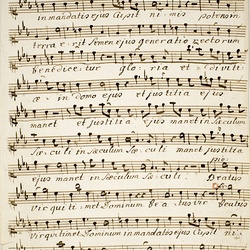 in mandatis ejus Cupit ni - mis potens in
terra e - rit Semen ejus generatio rectorum
benedice - tur glo - ria et diviti
æ - in domo ejus et justitia ejus
manet et justitia ejus manet in Sæculum
Sæ - cu li in Sæculum Sæ - cu li manet justitia
ejus manet in Sæculum Sæ - cu li. Beatus
vir qui ti - met Dominum Be a - tus vir Beatus
vir qui timet Dominum in mandatis ejus Cupit ni -